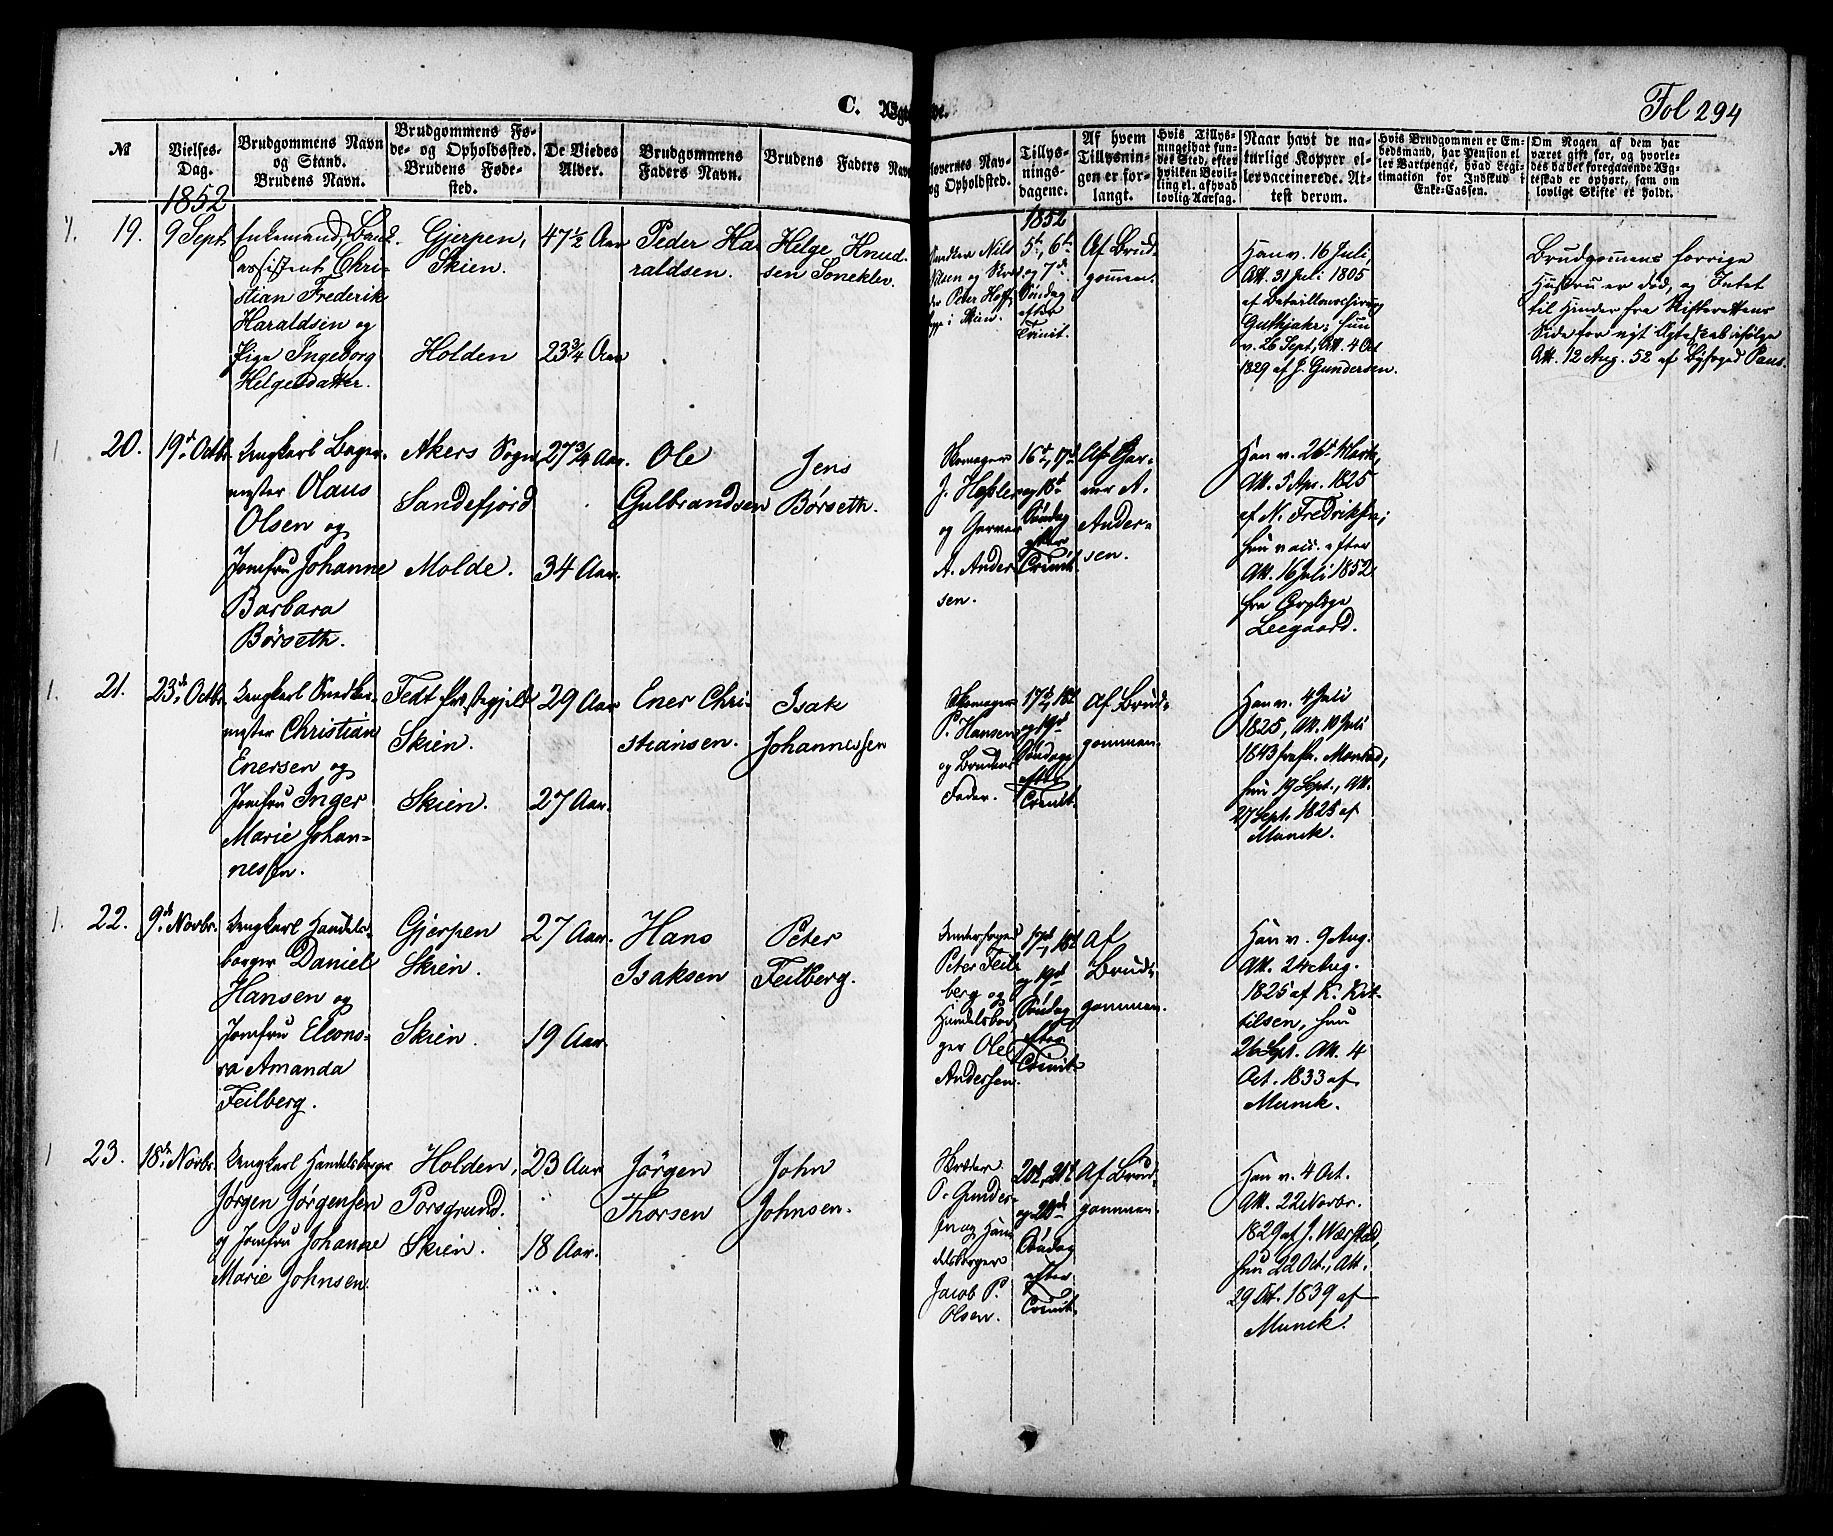 C.
Fol 294
No
Vielses-
Dag.
Brudgommens Navn
og Stand.
Brudens Navn.
Brudgommens Fø-
de- og Opholdssted.
Brudens Føde-
sted.
De Viedes
Alder.
Brudgommens
Faders Navn.
Brudens Faders Navn
lovernes Nav-
og Opholdsted.
Tillys-
nings-
dagene.
Af hvem
Tillysnin-
gen er for-
langt.
Hvis Tillys-
ningei hat fun-
det Sted, efter
hvilken Bevil-
ling el. afhvad
lovlig Aarsag.
Naar havt de na-
turlige Kopper el-
ler vaccinerede. At-
test derom.
Hvis Brudgommen er Em-
bedsmand, har Pension el-
ler Vartpenge, hvad Legi-
timation for Indskud i
Enke-Cassen.
Om Nogen af dem har
været gift før, og hvorle-
des da det foregaaende Æg-
teskab er ophørt, sam om
lovligt Skifte er holdt.
1852
1852
19.
9 Sept.
Enkemand, Bank-
assistent Chri-
stian Frederik
Haraldsen og
Pige Ingeborg
Helgesdatter.
Gjerpen,
Skien.
Holden
47½ Aar
23¾ Aar
Peder Ha-
raldsen.
Helge Knud-
sen Soneklev.
Nils
Nilsen og
Peter Hoff-
i Skien.
5te, 6te
og 7de
Søndag
efter
Trinit.
Af Brud-
gommen.
Han v. 16 Juli,
Att. 31 Juli 1805
af
Guthjahr; hun
v. 26 Sept, Att. 4 Oct
1829 af J. Gundersen.
Brudgommens forrige
Hustru er død, og Intet
til Hinder fra Skifterettens
Side for nyt Ægteskab ifølge
Att. 12 Aug. 52 af Byfoged Paus.
20.
19de Octbr.
Ungkarl Bager-
mester Olaus
Olsen og
Jomfru Johanne
Barbara
Børseth.
Akers Sogn
Sandefjord
Molde.
27¾ Aar.
34 Aar.
Ole
Gulbrandsen
Jens
Børseth.
Skomager
J.
og Garver
A. Ander-
sen.
16de, 17de
og 18de
Søndag
efter
Trinit.
Af Gar-
ver A.
Ander-
sen.
Han v. 26de Marts,
Att. 5 Apr. 1825
af N. Fredriksen;
hun vacc. efter
Att. 16 Juli 1852
fra Corpslæge
Leegaard.
21.
23de Octbr.
Ungkarl Snedker-
mester Christian
Enersen og
Jomfru Inger
Marie Johan-
nessen.
Skien.
Skien.
29 Aar
27 Aar.
Ener Chri-
stiansen.
Isak
Johannessen
Skomager
P. Hansen
og Brudens
Fader.
17de, 18de
og 19de
Søndag
efter
Trinit.
Af Brud-
gommen.
Han v. 4 Juli
1825, Att. 10 Juli
1843 fra
hun 19 Sept., Att.
27 Sept. 1825 af
Munck.
22.
9de Novbr.
Ungkarl Handels-
borger Daniel
Hansen og
Jomfru Eleono-
ra Amanda
Feilberg.
Gjerpen
Skien.
Skien.
27 Aar.
19 Aar.
Hans
Isaksen
Peter
Feilberg.
Peter Feil-
berg og
Handelsbor-
ger Ole
Andersen.
17de, 18de
og 19de
Søndag
efter
Trinit.
Af
Brud-
gommen.
Han v. 9 Aug.
Att. 24 Aug.
1825 af K. Kit-
tilsen, hun
26 Sept. Att. 4
Oct. 1833 af
Munck.
23.
18de Novbr.
Ungkarl Handelsborger
Jørgen Jørgensen
og Jomfru Johanne
Marie Johnsen.
Holden,
Porsgrund.
Skien.
23 Aar
18 Aar.
Jørgen
Thorsen
John
Johnsen.
Skræder
P. Gunder-
sen og Han-
delsborger
Jacob P.
Olsen.
20de, 21de
og 22de
Søndag
efter
Trinit.
Af Brud-
gommen.
Han v. 4 Oct.
Att. 22 Novbr.
1829 af J. Wærstad,
hun 22 Oct., Att.
29 Oct. 1839 af
Munck.